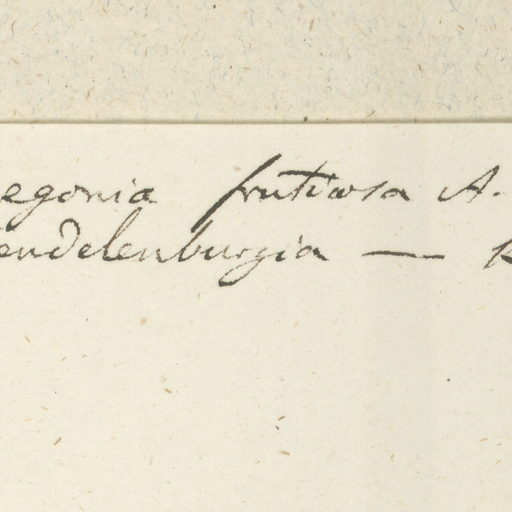 egonia fruticosa A.
endelenburgia — K